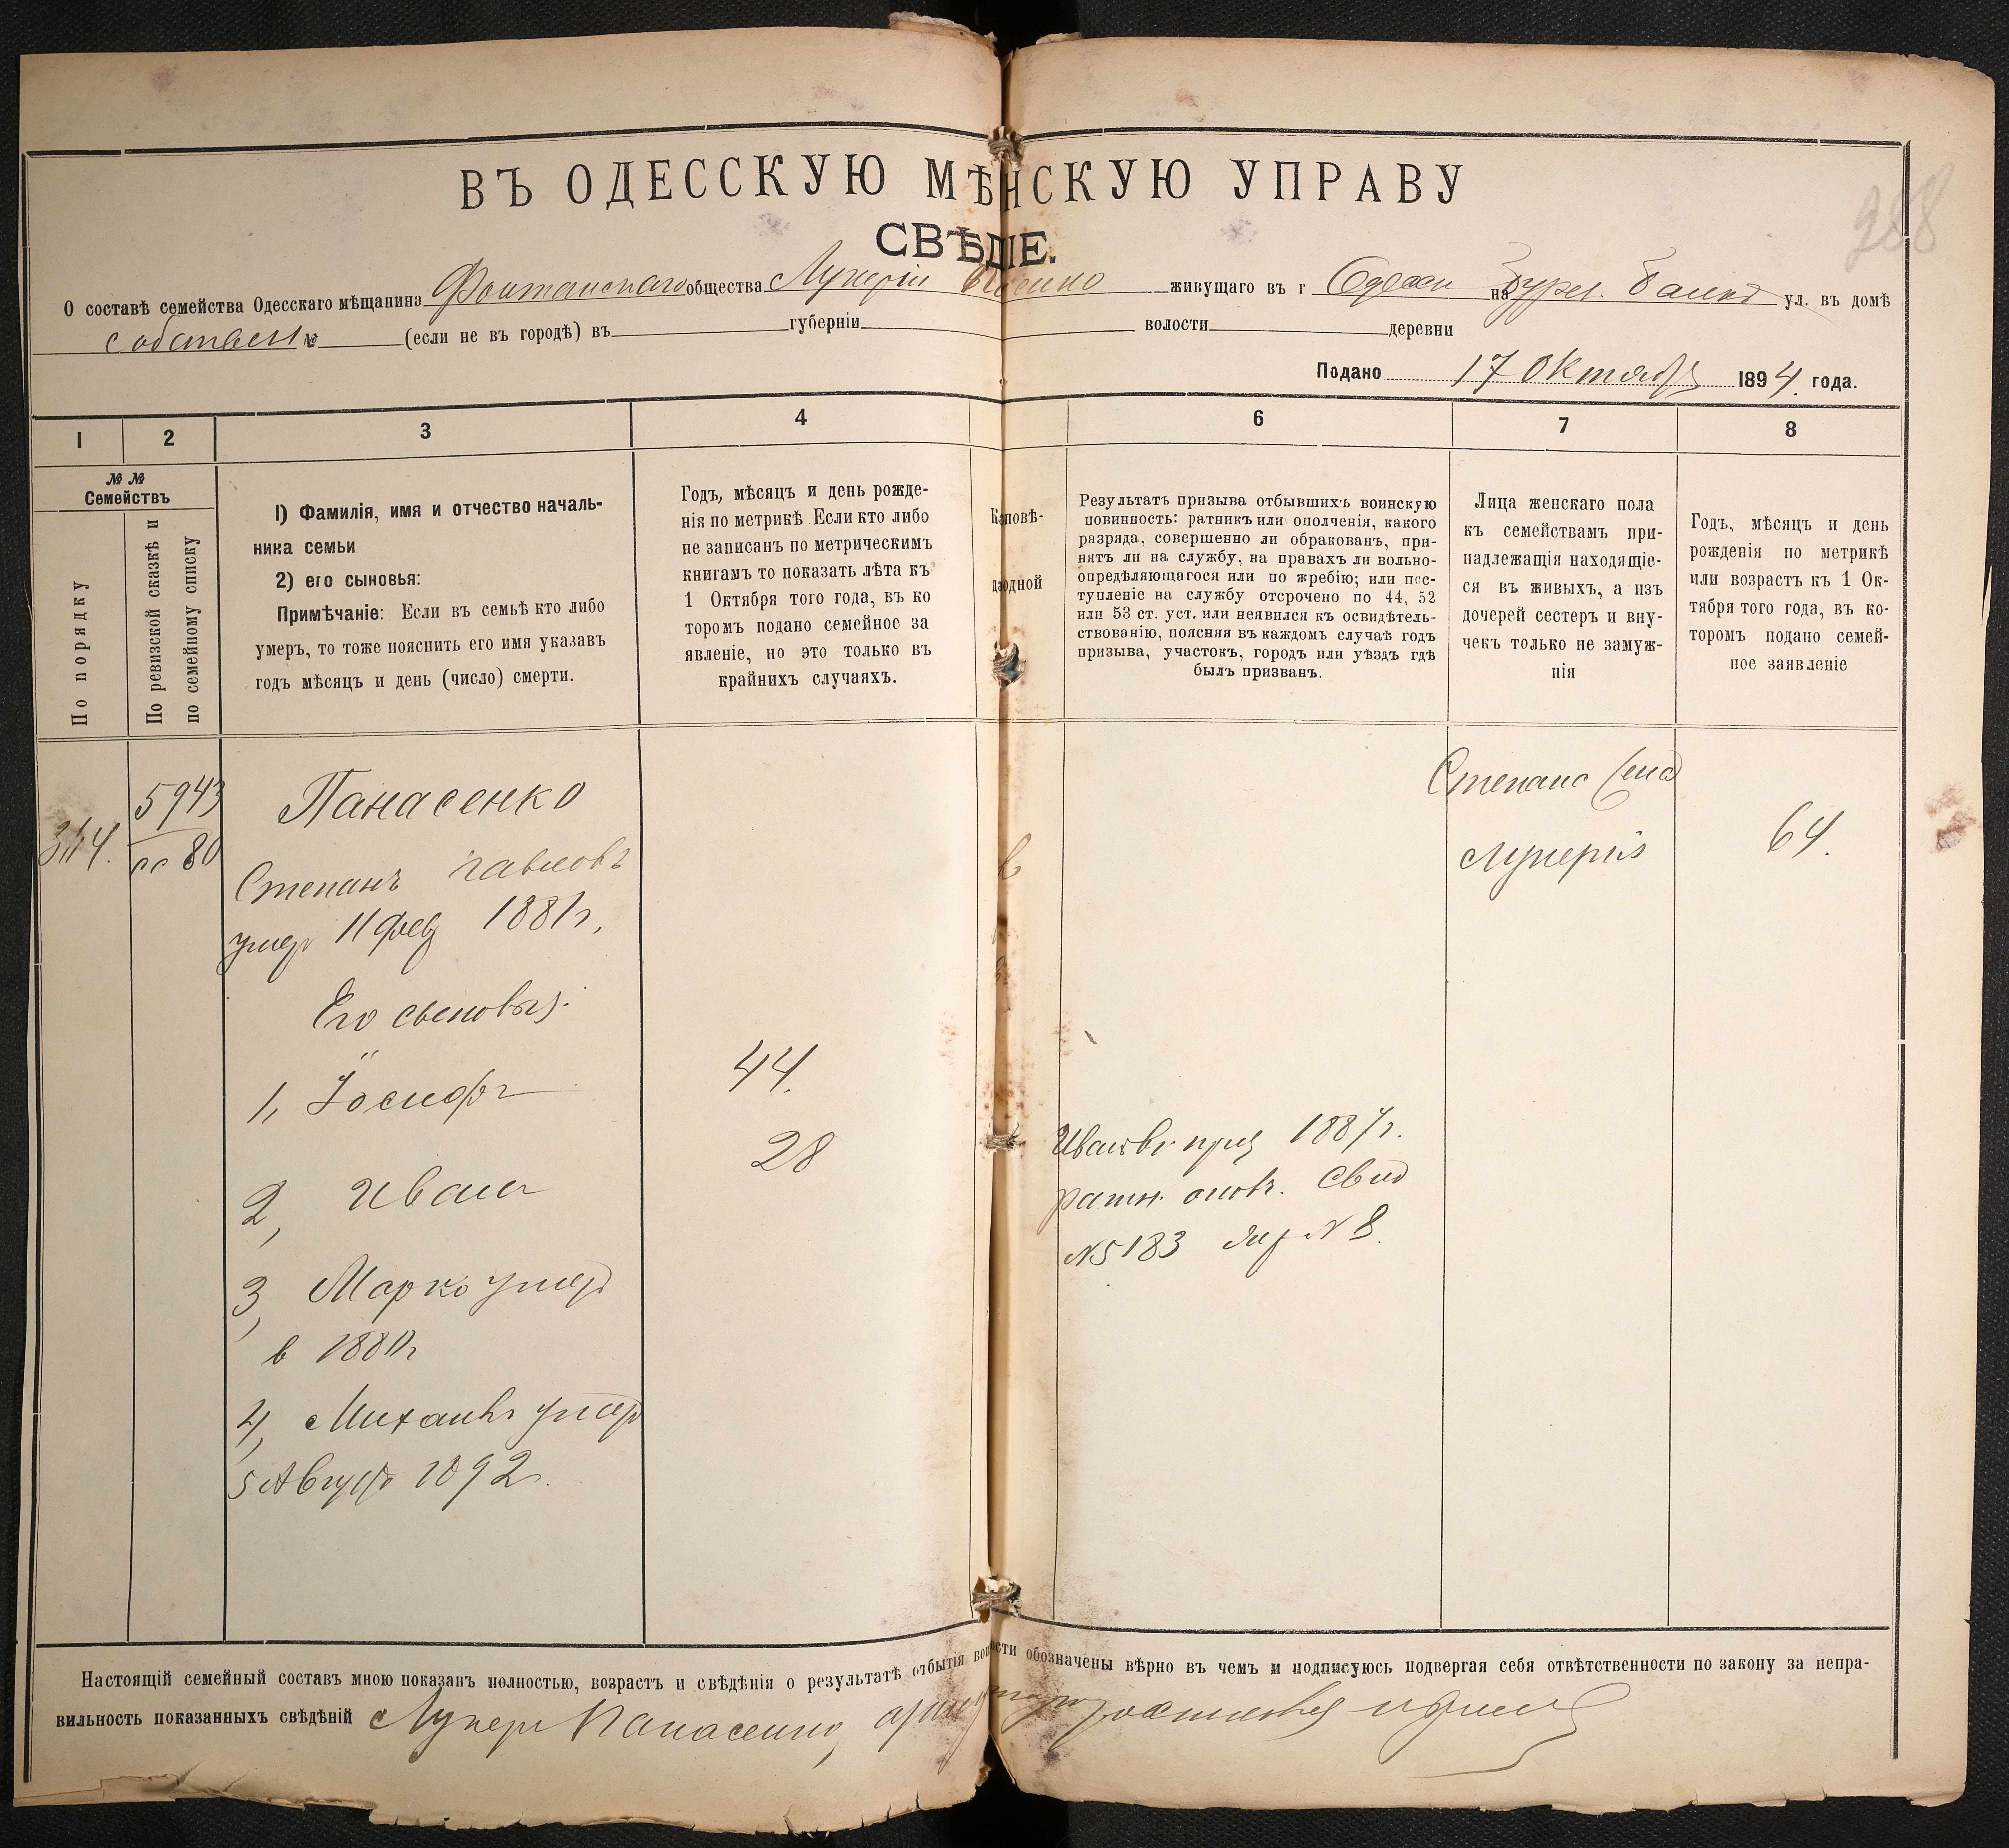 288
ВЪ ОДЕССКУЮ МѢНСКУЮ УПРАВУ
СВѢДІЕ.
О составѣ семейства Одесскаго мѣщанина Фонтанскаго общества Лукеріи живущаго въ г Одессы на Бурл. Балкѣ ул. въ домѣ
собствен № (если не въ городѣ) въ губерніи волости деревни
Подано 17 Октября 1894. года.
1 2 3 4 6 7 8
№ № Семействъ
По порядку
По ревизской сказкѣ и по семейному списку
1) Фамилія, имя и отчество началь-
ника семьи
2) его сыновья:
Примѣчаніе: Если въ семьѣ кто либо
умеръ, то тоже пояснить его имя указавъ
годъ мѣсяцъ и день (число) смерти.
Годъ, мѣсяцъ и день рожде-
нія по метрикѣ Если кто либо
не записанъ по метрическимъ
книгамъ то показать лѣта къ
1 Октября того года, въ ко
торомъ подано семейное за
явленіе, но это только въ
крайнихъ случаяхъ.
Результатъ призыва отбывшихъ воинскую
повинность: ратникъ или ополченія, какого
разряда, совершенно ли обракованъ, при-
нятъ ли на службу, на правахъ ли вольно-
опредѣляющагося или по жребію; или пос-
тупленіе на службу отсрочено по 44, 52
или 53 ст. уст. или неявился къ освидѣтель-
ствованію, поясняя въ каждомъ случаѣ годъ
призыва, участокъ, городъ или уѣздъ гдѣ
былъ призванъ.
Лица женскаго пола
къ семействамъ при-
надлежащія находящіе-
ся въ живыхъ, а изъ
дочерей сестеръ и вну-
чекъ только не замуж-
нія
Годъ, мѣсяцъ и день
рожденія по метрикѣ
или возрастъ къ 1 Ок-
тября того года, въ ко-
торомъ подано семей-
ное заявленіе
344.
5943
сс 80
Панасенко
Степанъ Павловъ
умер 11 Фев 1881 г.
Его сыновья:
1, Іосифъ 44.
2, Иванъ 28
3, Марко умер
в 1880 г
4, Михаилъ умер
5 Августа 1892 г.
Иванъ приз 1887 г.
ратн. опол. Свид
№ 5183 № 8.
Степана жена
Лукерія 64.
Настоящій семейный составъ мною показанъ полностью, возрастъ и свѣдѣнія о результатѣ отбытія обозначены вѣрно въ чемъ и подписуюсь подвергая себя отвѣтственности по закону за непра-
вильность показанныхъ свѣдѣній Лукерія Панасенко,